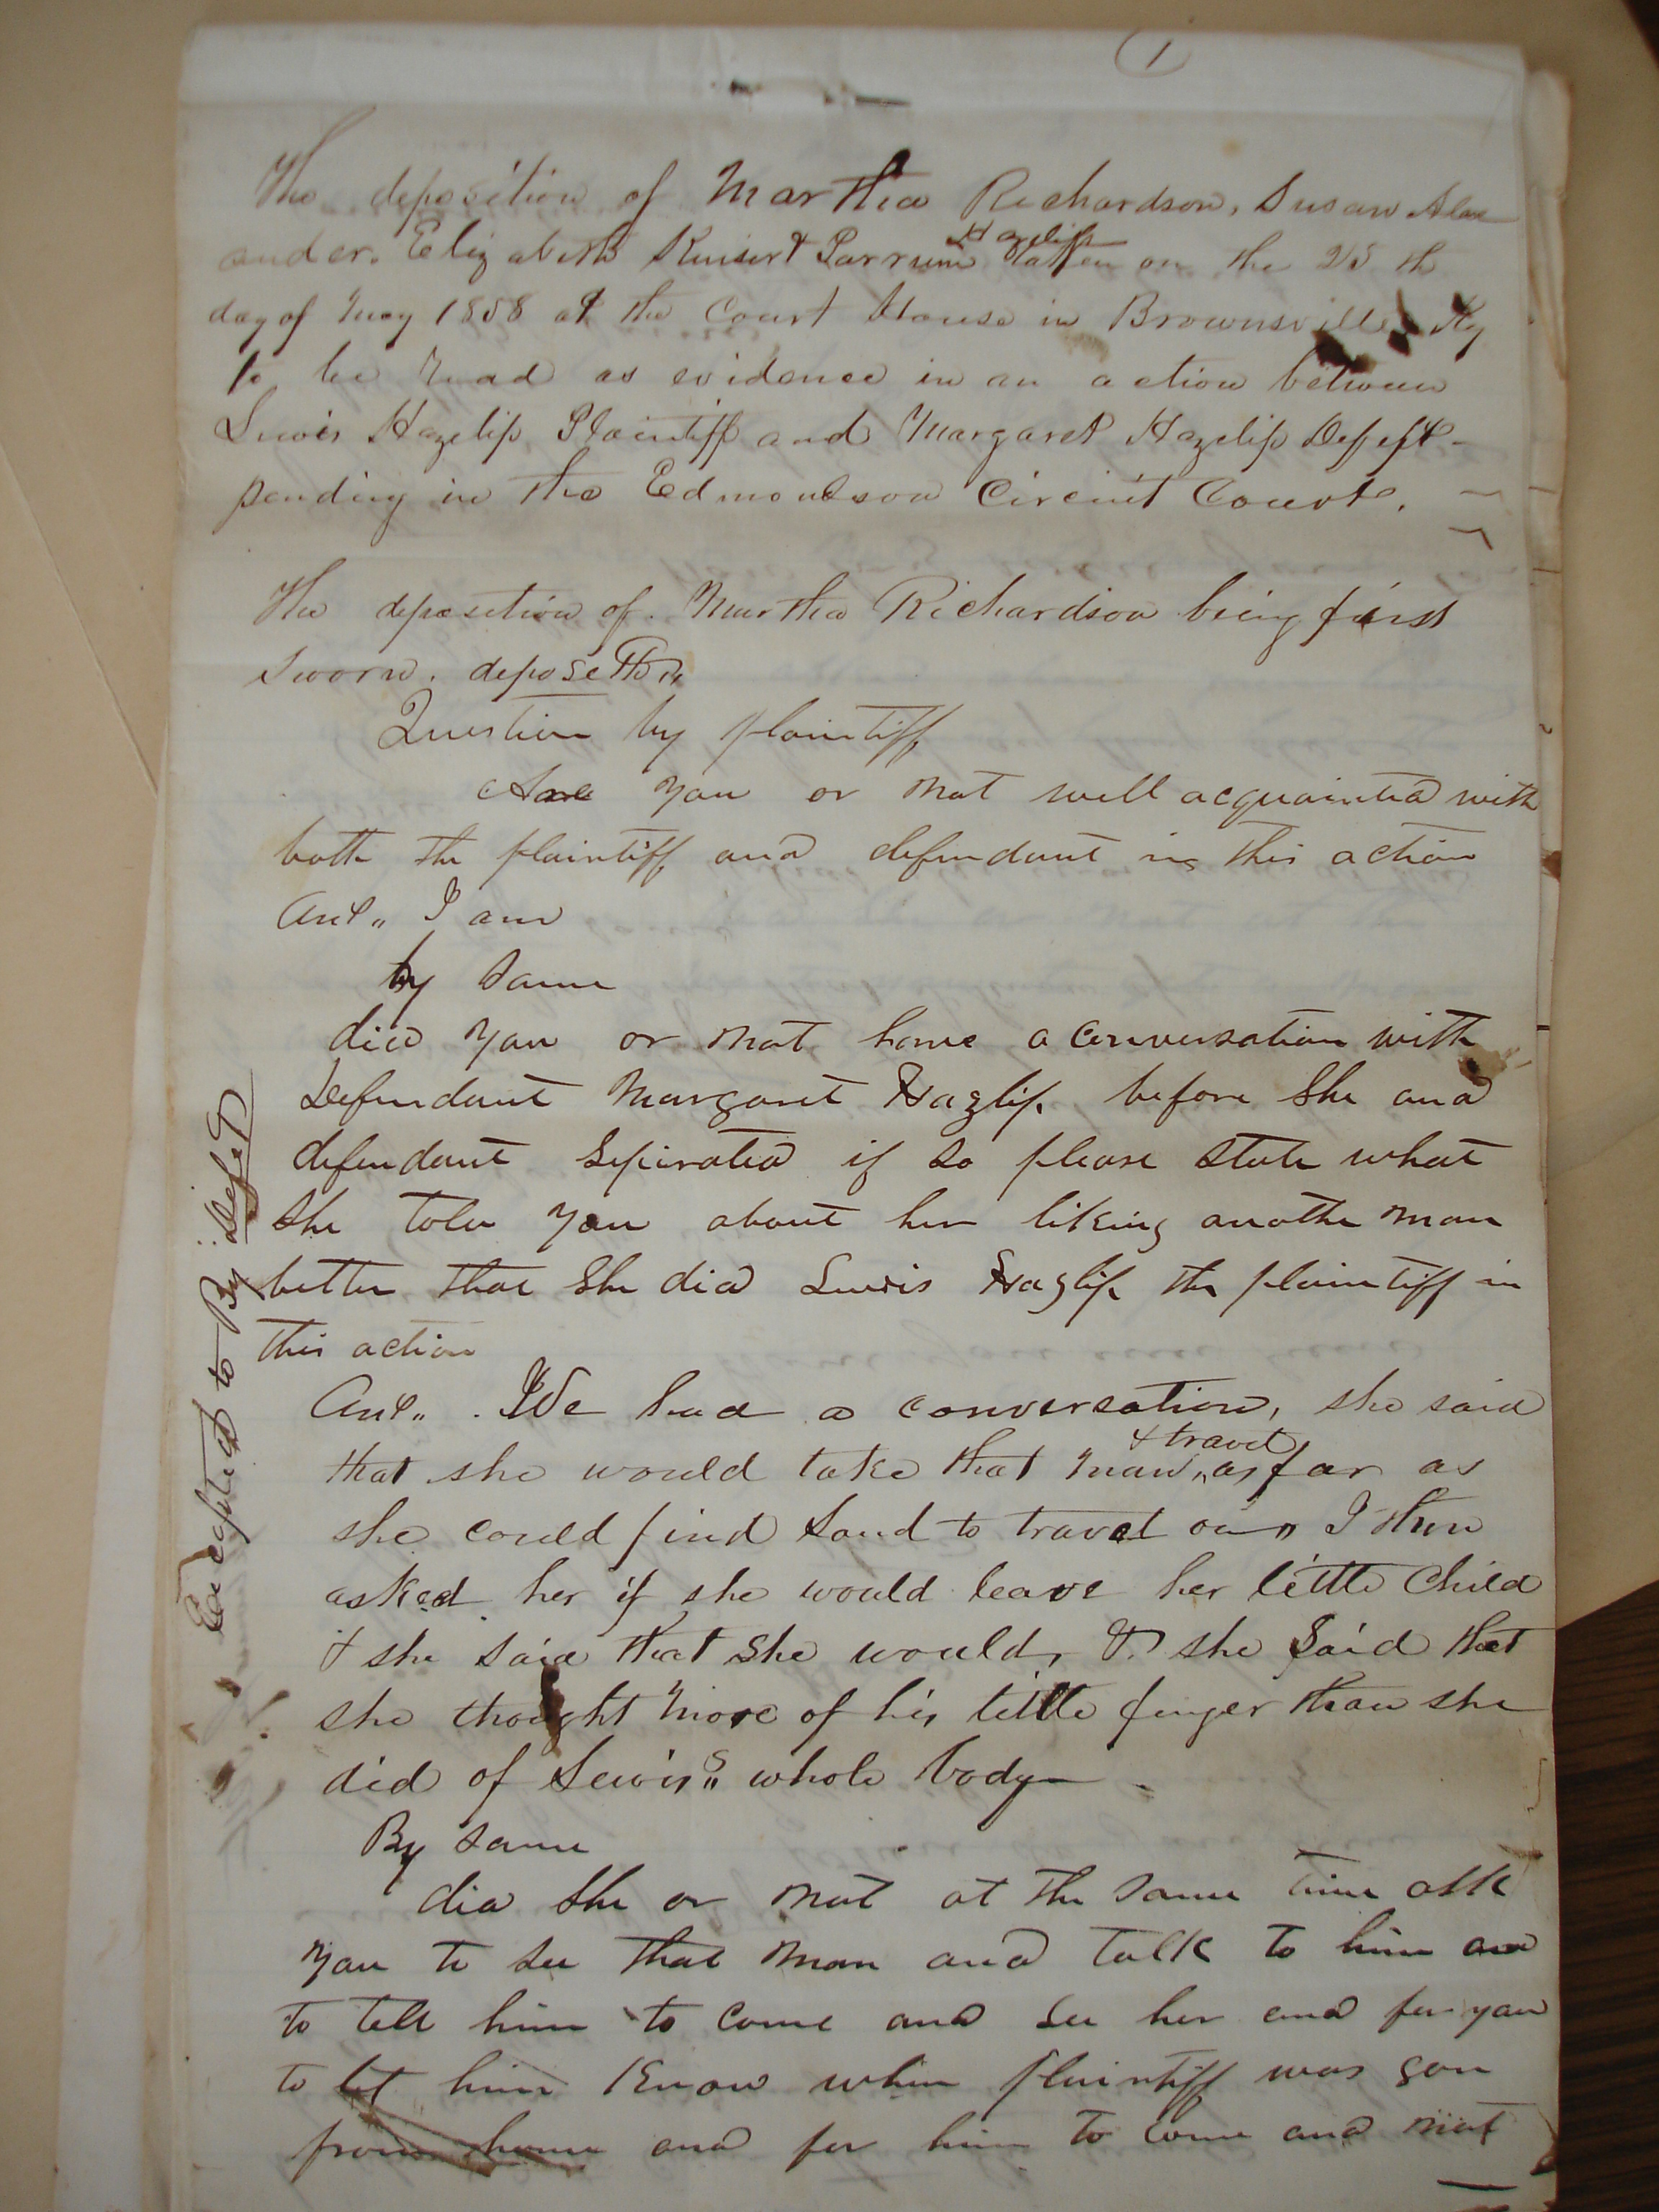 1
The deposition of Martha Richardson, Susan Alex
ander. Elizabeth Parrum Hazelip taken on the 25 th
day of May 1858 at the Court House in Brownsville Ky
to be read as evidence in an action between
Lewis Hazelip Plaintiff and Margaret Hazelip Defeft-
pending in the Edmondson Circuit Court.
The deposition of. Martha Richardson being first
sworn. deposeth"
Question by plaintiff
Are you or not well acquainted with
both the plaintiff and defendant in this action
Ans" I am
by same
did you or not have a conversation with
Defendant Margaret Hazlip before She and
defendant Seperated if so please state what
she told you about her liking anothe man
better that She did Lewis Hazlip the plaintiff in
this action
Ans" . We had a conversation, she said
that she would take that man, & travel as far as
she could find Land to travel on" I then
asked her if she would leave her little Child
& she said that she would, & she said that
she thought more of his little finger than she
did of Lewis"s whole body
By same
did she or not at the same time ask
you to see that man and talk to him and
to tell him to come and see her and for you
to let him Know when plaintiff was gon
from home and for him to come and not
Excepted to By Deft